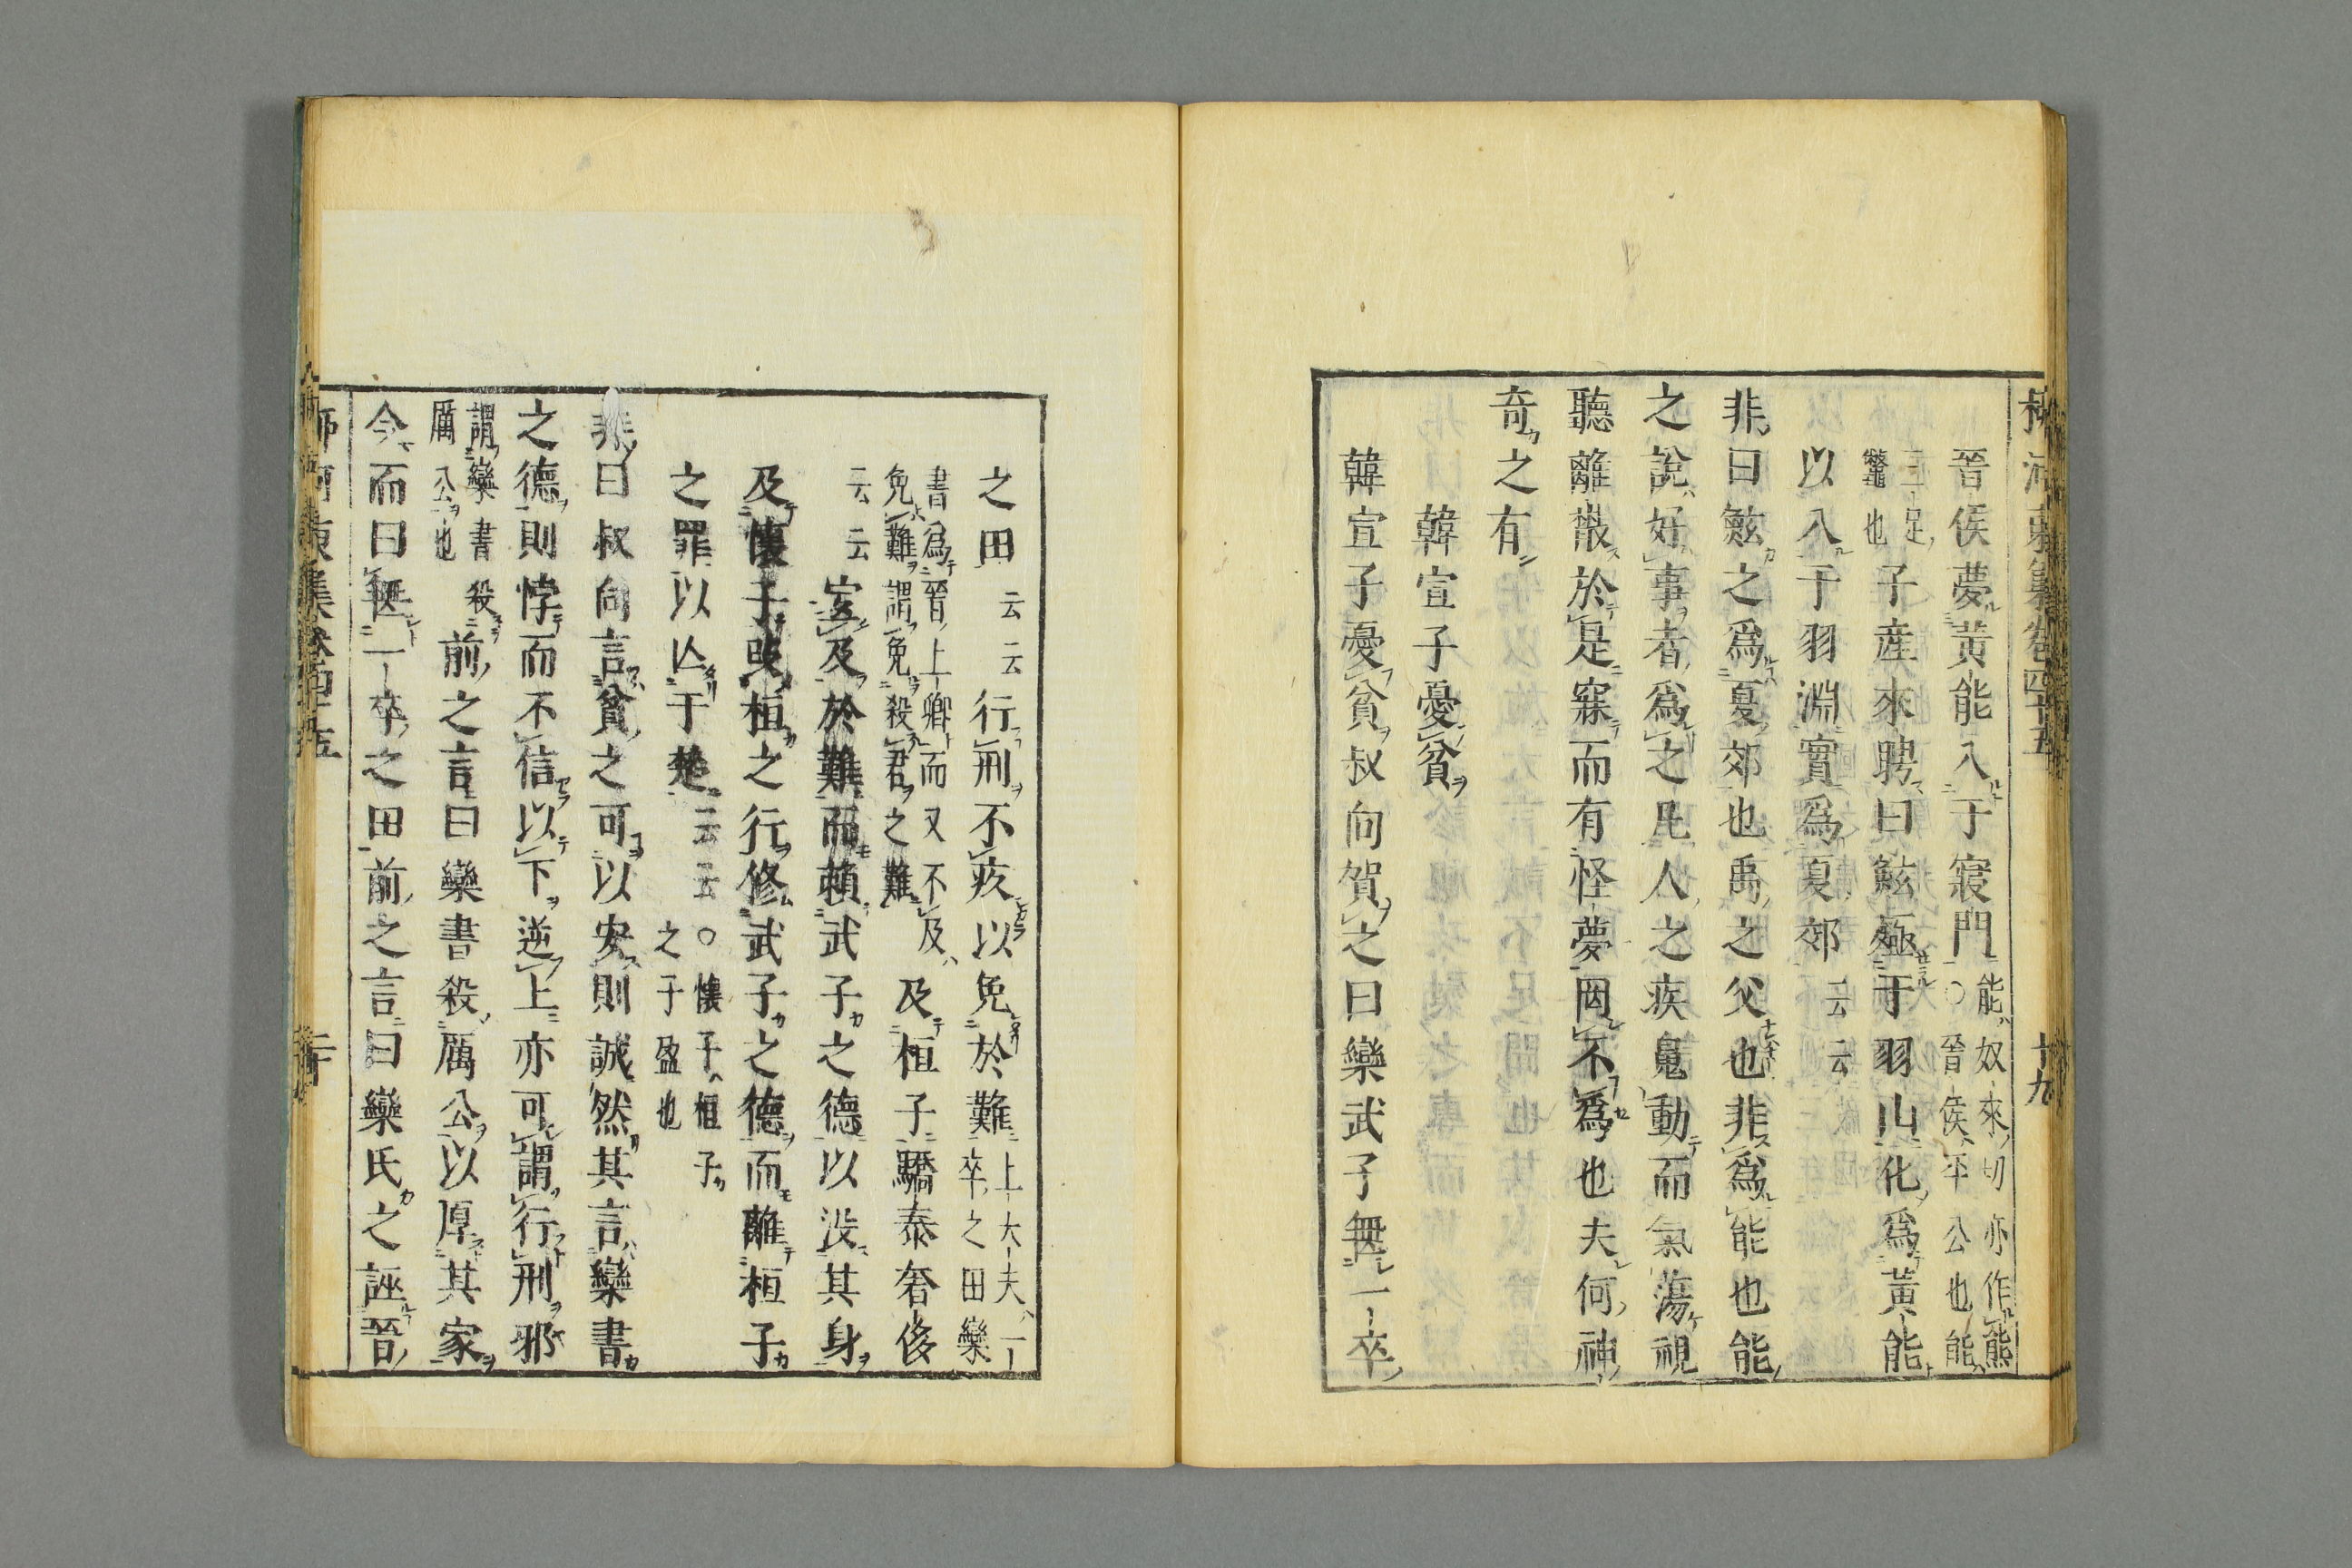 柳河東集卷四十五　十九
晉侯夢黃能入于寢門能奴來切亦作熊○晉侯平公也能
三足鼈也子產來聘曰鮌殛于羽山化爲黃能
以入于羽淵實爲夏郊云云
非曰鮌之爲夏郊也禹之父也非爲能也能
之說好事者爲之凡人之疾魄動而氣蕩視
聽離散於是寐而有怪夢罔不爲也夫何神
奇之有
韓宣子憂貧
韓宣子憂貧叔向賀之曰欒武子無一卒
之田云云行刑不疚以免於難上大夫一卒之田欒
書爲晉上卿而又不及免難謂免殺君之難及桓子驕泰奢侈
云云宜及於難而賴武子之德以沒其身
及懷子改桓之行修武子之德而離桓子
之罪以亾于楚云云○懷子桓子之子盈也
非曰叔向言貧之可以安則誠然其言欒書
之德則悖而不信以下逆上亦可謂行刑邪
謂欒書殺厲公也前之言曰欒書殺厲公以厚其家
今而曰無一卒之田前之言曰欒氏之誣晉
柳河東集卷四十五　二十